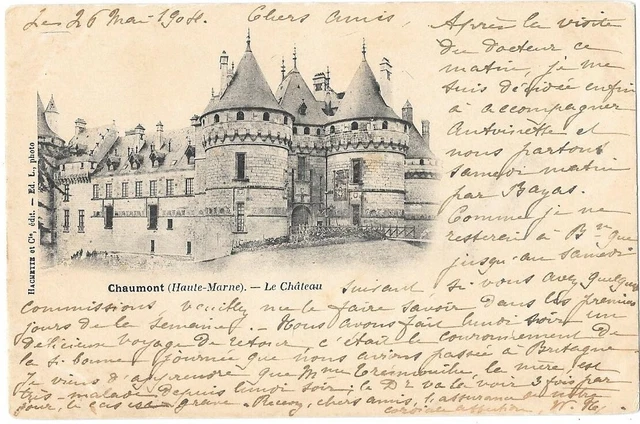 Le 26 Mai 1904. Chers amis,
Après la visite
du docteur ce
matin, je me
suis décidée enfin
à accompagner
Antoinette et
nous partons
samedi matin
par Bayas.
Comme je ne
resterai à B
jusqu'au samedi
HACHETTE et Cie, édit. — Ed. L., photo
Chaumont (Haute-Marne). — Le Château
suivant, si vous avez quelques
commissions veuillez me le faire savoir dans les premiers
jours de la semaine. - Nous avons fait lundi soir un
délicieux voyage de retour, c'était le couronnement de
la si bonne journée que nous avions passée à Bretagne
Je viens d'apprendre que Mme la mère, est
très malade depuis lundi soir; le Dr va la voir 3 fois par
jour, le cas grave. Recevez, chers amis, l'assurance de notre
cordiale affection,